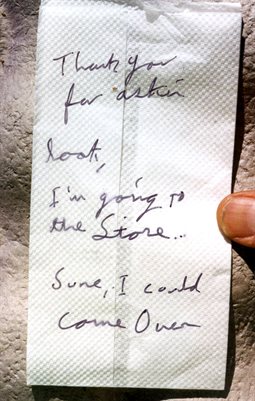 Thank you
for askin
look,
I'm going to
the Store...
Sure, I could
come Over